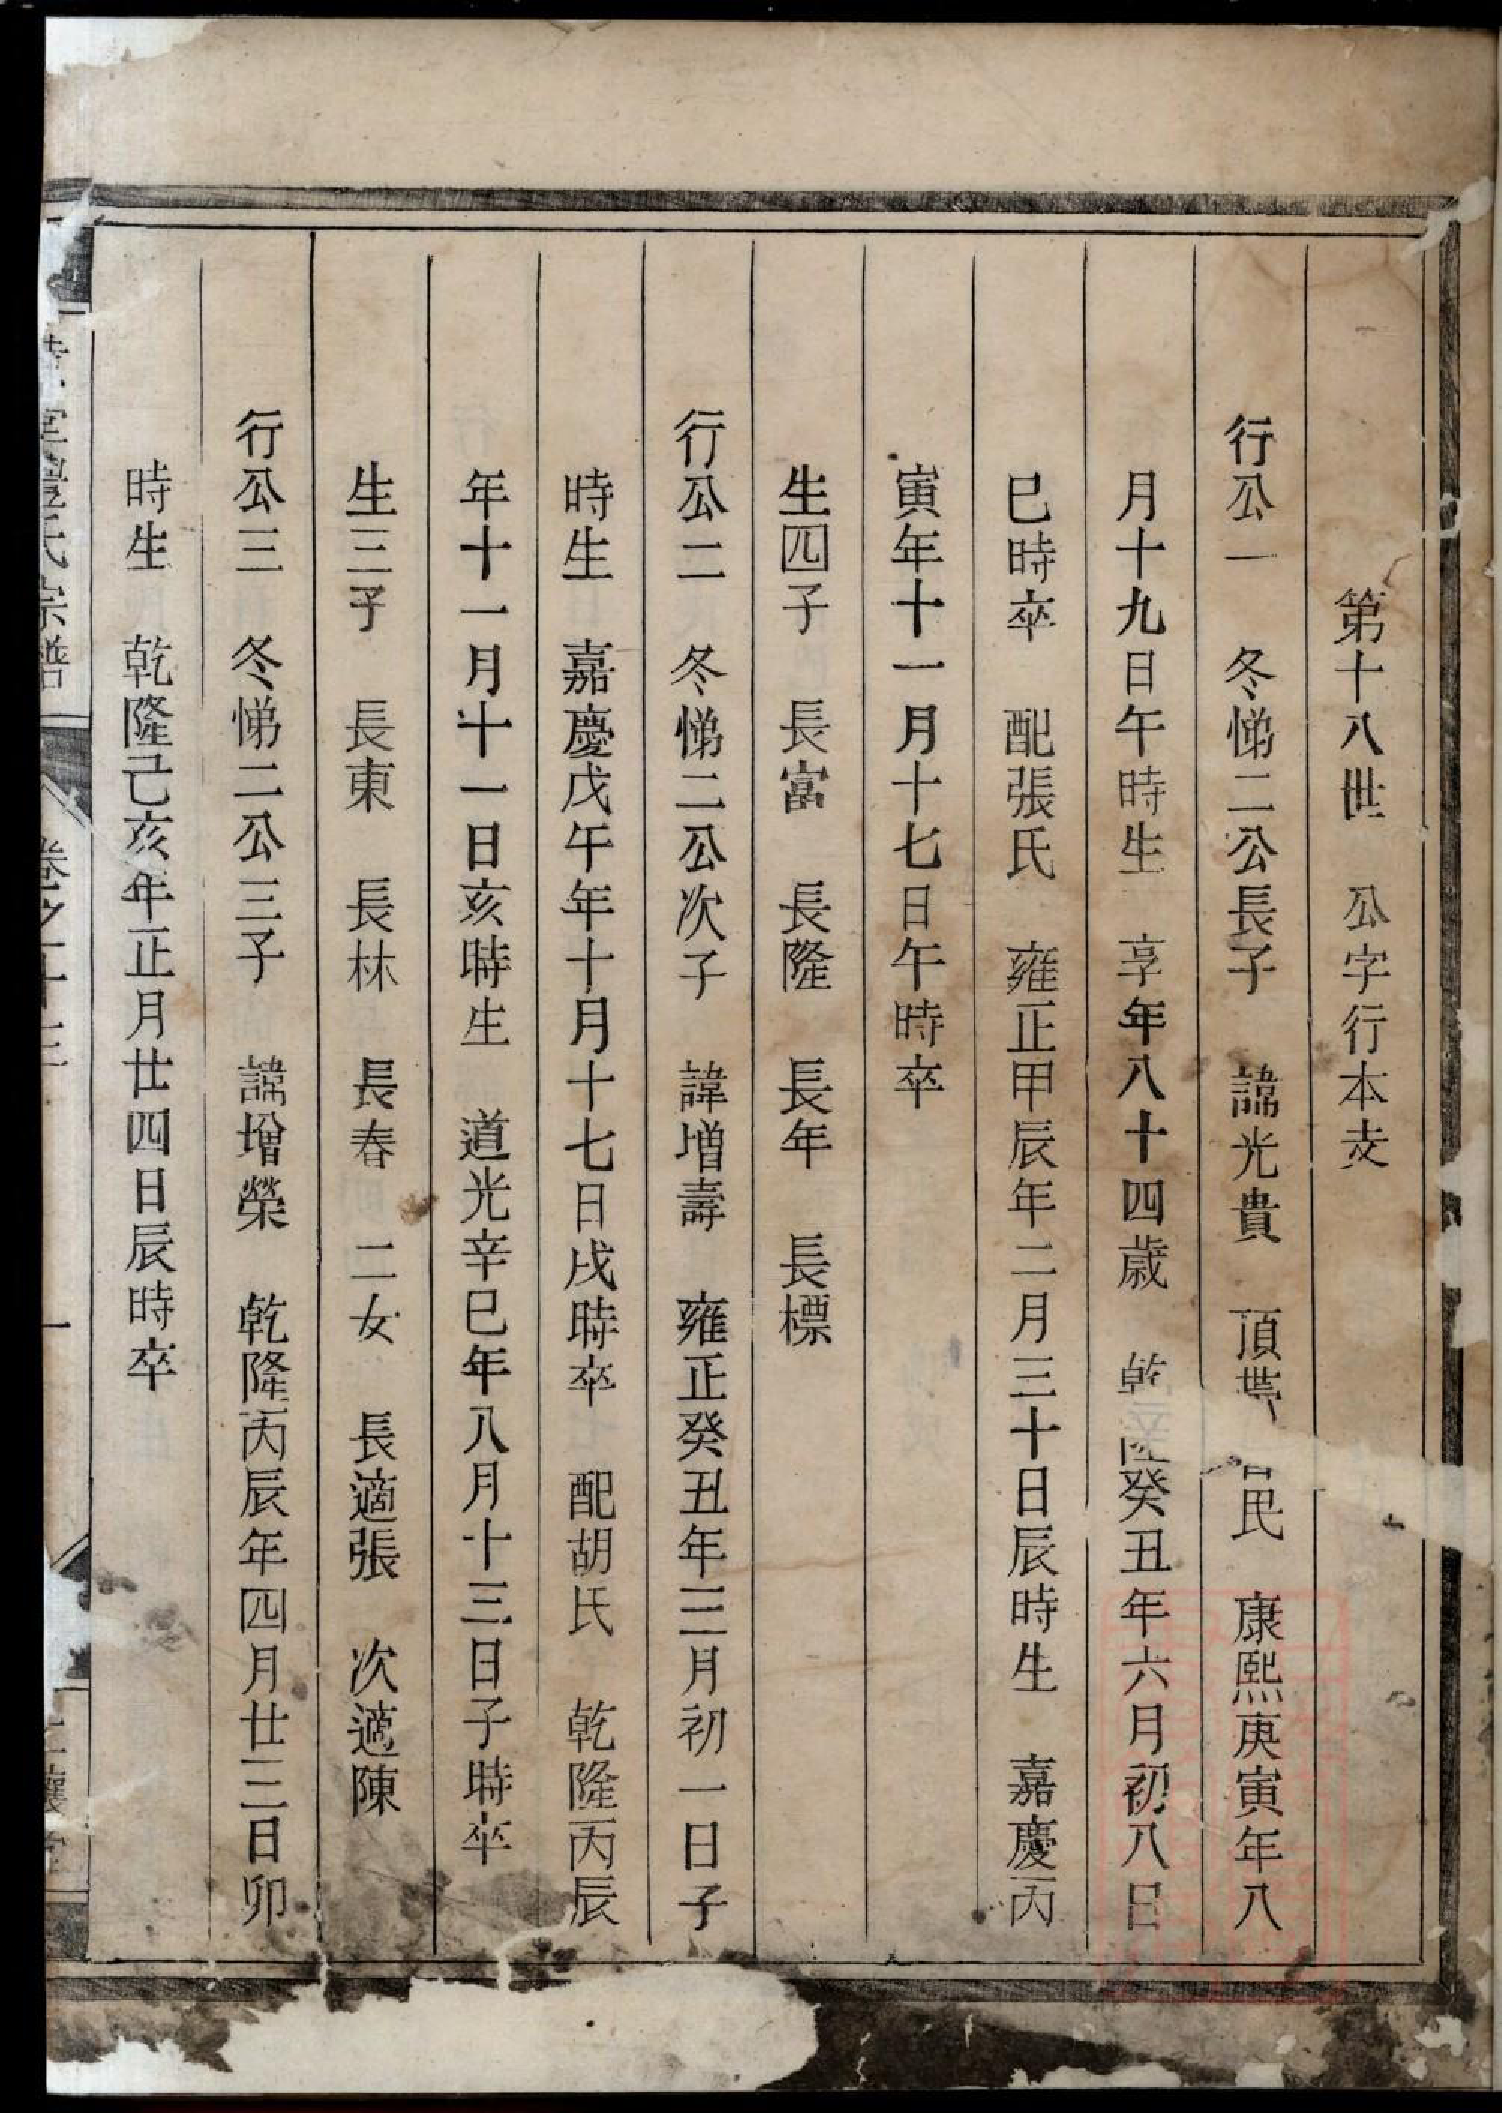 第十八世　公字行本支
行公一　冬悌二公長子　諱光貴　頂　民　康熙庚寅年八
月十九日午時生　享年八十四歲　乾隆癸丑年六月初八日
巳時卒　配張氏　雍正甲辰年二月三十日辰時生　嘉慶丙
寅年十一月十七日午時卒
生四子　長富　長隆　長年　長標
行公二　冬悌二公次子　諱增壽　雍正癸丑年三月初一日子
時生　嘉慶戊午年十月十七日戌時卒　配胡氏　乾隆丙辰
年十一月十一日亥時生　道光辛巳年八月十三日子時卒
生三子　長東　長林　長春　二女　長適張　次適陳
行公三　冬悌二公三子　諱增榮　乾隆丙辰年四月廿三日卯
時生　乾隆己亥年正月廿四日辰時卒
氏宗譜
卷之十三
一